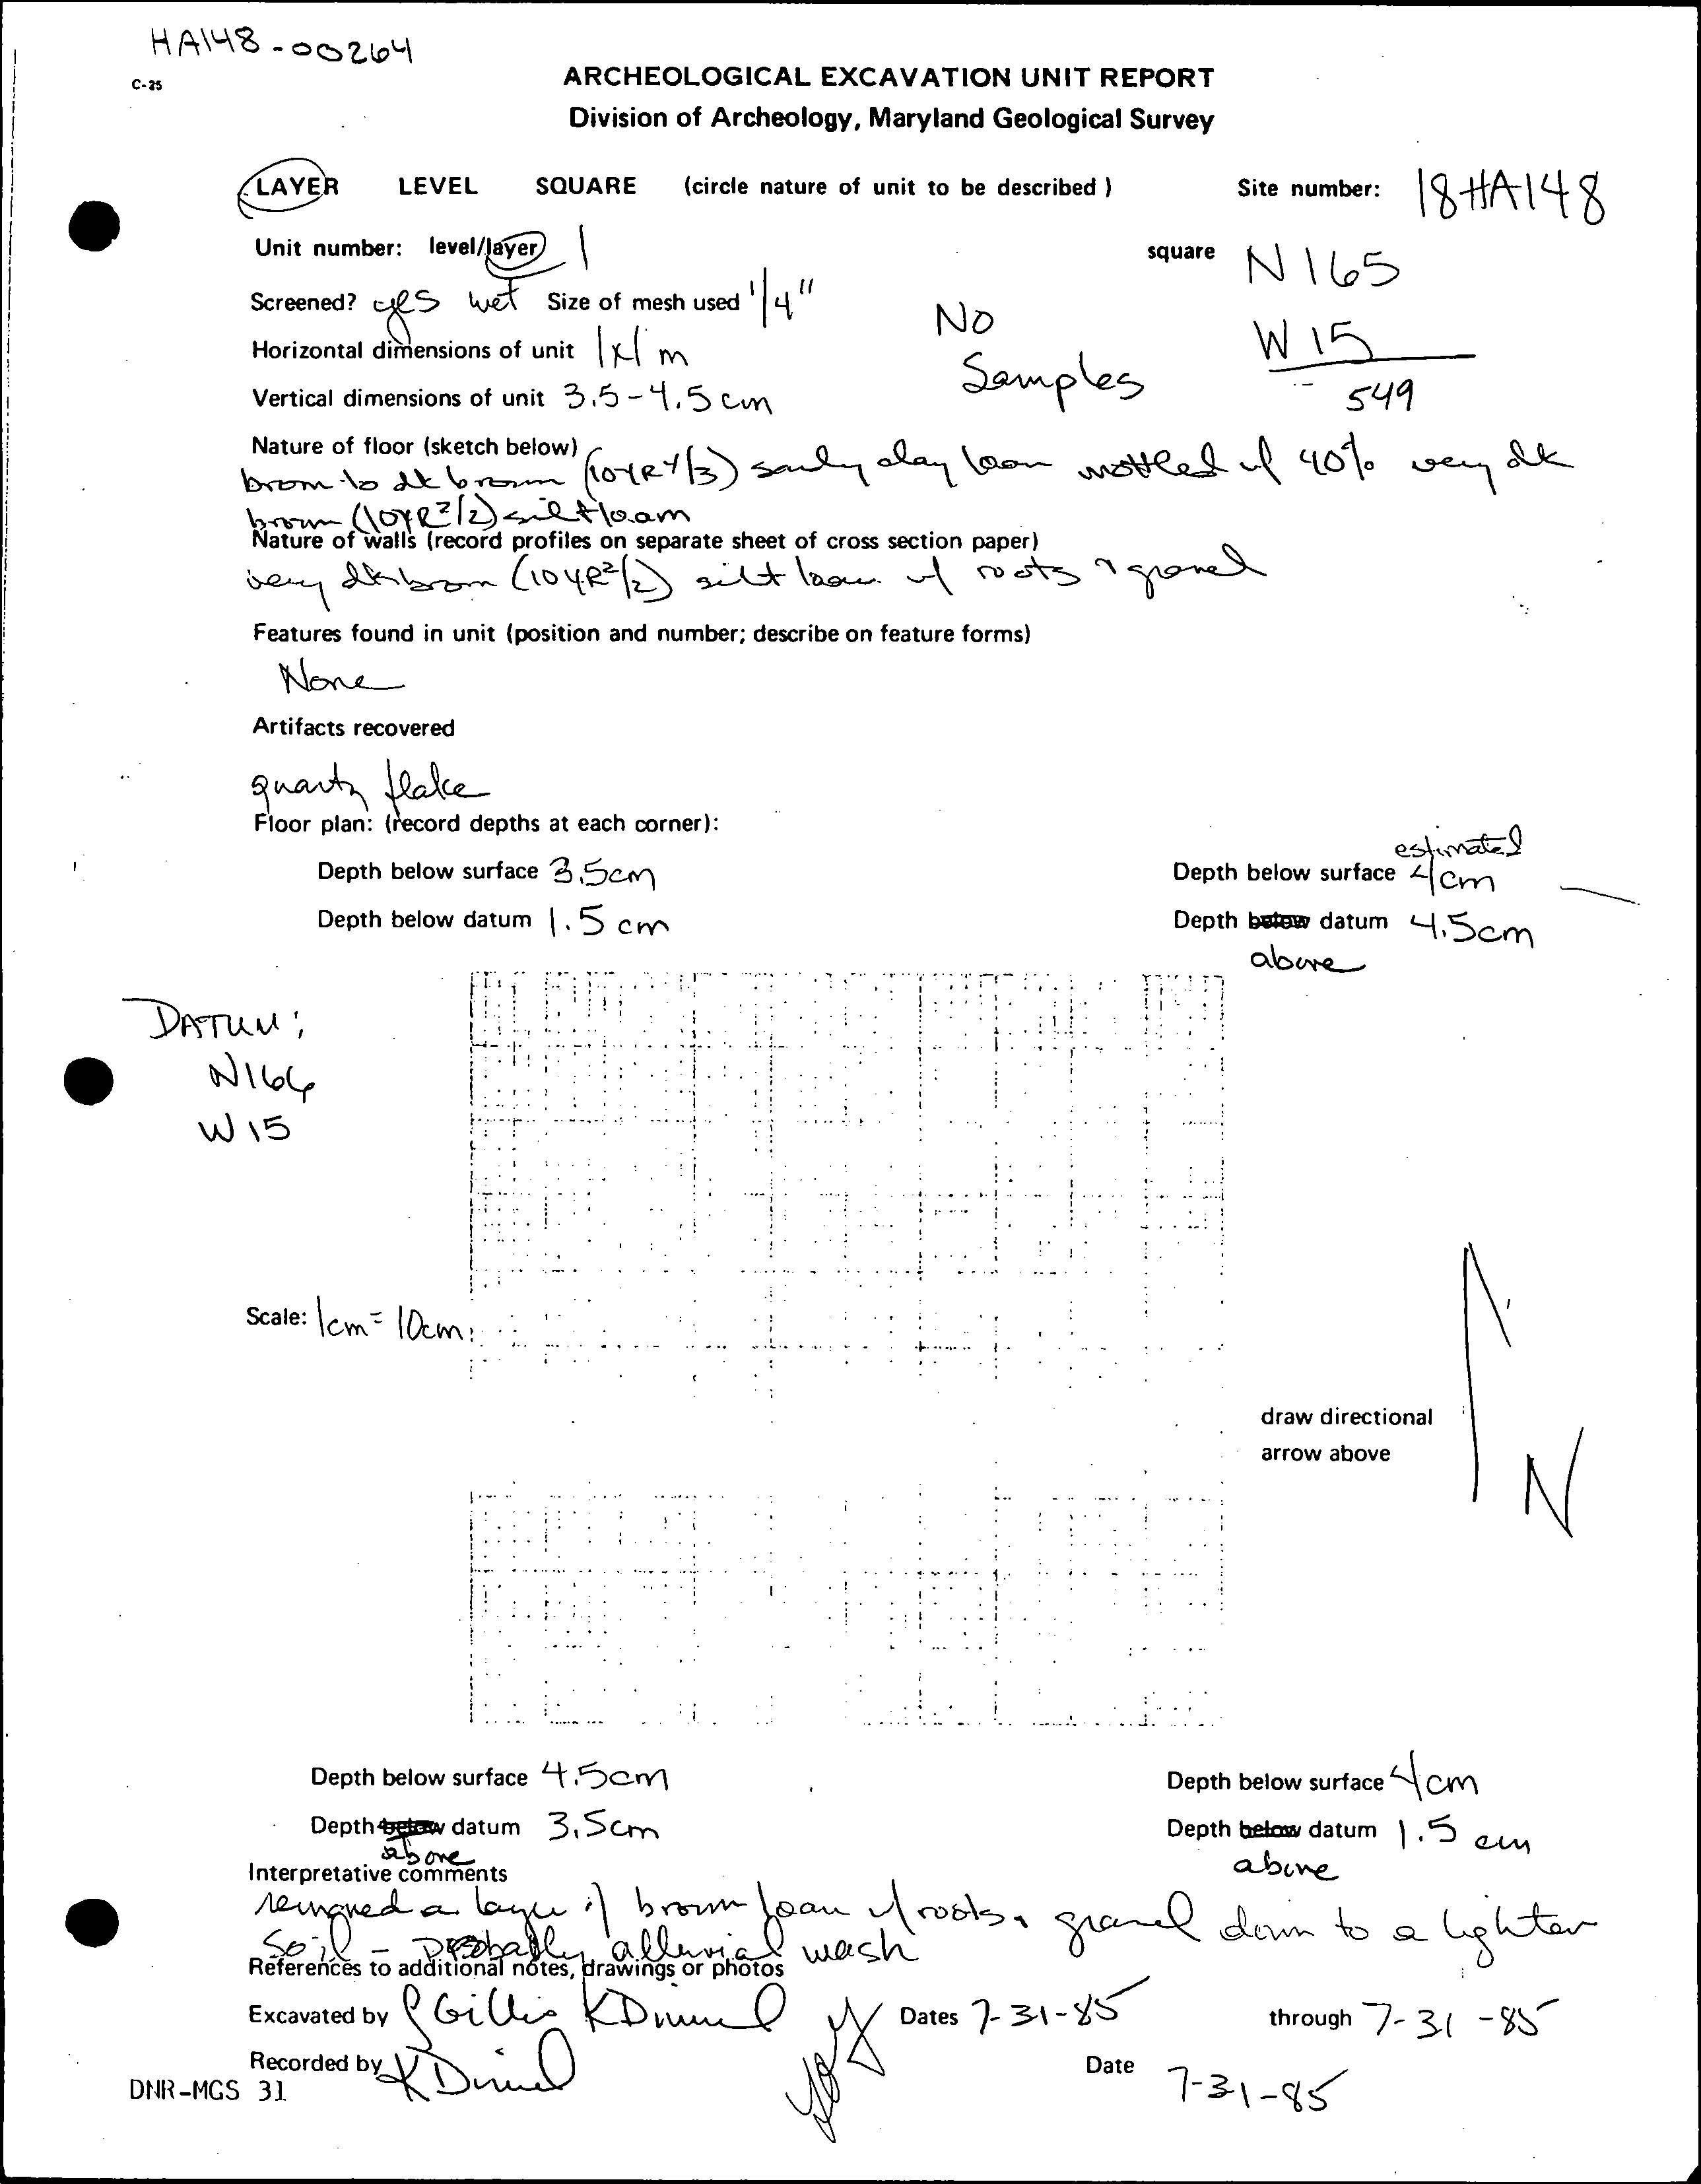 HA148-00264
C-25
ARCHEOLOGICAL EXCAVATION UNIT REPORT
Division of Archeology, Maryland Geological Survey
LAYER LEVEL SQUARE (circle nature of unit to be described ) Site number: 18HA148
Unit number: level/layer 1 square N 165
Screened? yes wet Size of mesh used 1/4" No W 15
Horizontal dimensions of unit 1x1 m Samples 549
Vertical dimensions of unit 3.5-4.5 cm
Nature of floor (sketch below)
brown to dk brown (10YR 4/3) sandy clay loam mottled w/ 40% very dk
brown (10YR 2/2) silt loam
Nature of walls (record profiles on separate sheet of cross section paper)
very dk brown (10YR 2/2) silt loam w/ roots & gravel
Features found in unit (position and number; describe on feature forms)
None
Artifacts recovered
quartz flake
Floor plan: (record depths at each corner):
estimated
Depth below surface 3.5cm Depth below surface 4cm
Depth below datum 1.5 cm Depth below datum 4.5cm
above
DATUM:
N166
W 15
Scale: 1cm = 10cm
draw directional
arrow above
N
Depth below surface 4.5cm Depth below surface 4cm
Depth below datum 3.5cm Depth below datum 1.5 cm
above above
Interpretative comments
removed a layer of brown loam w/ roots & gravel down to a lighter
soil - probably alluvial wash
References to additional notes, drawings or photos
Excavated by Gillis K Dates 7-31-85 through 7-31-85
Recorded by K Date 7-31-85
DNR-MGS 31